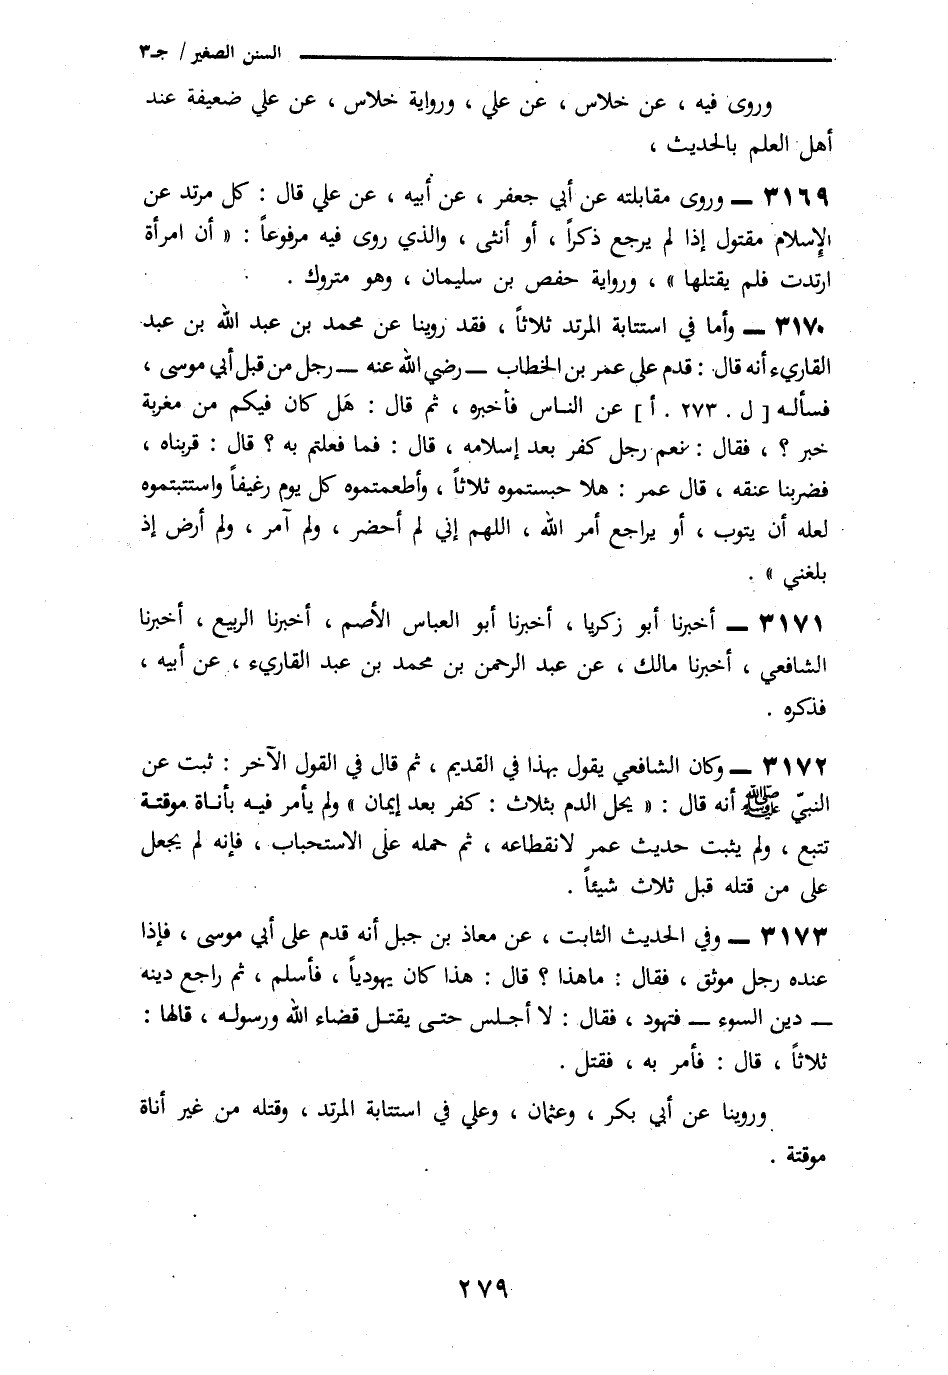 السنن الصغير / جـ٣
وروى فيه ، عن خلاس ، عن علي ، ورواية خلاس ، عن علي ضعيفة عند
أهل العلم بالحديث ،
٣١٦٩ ــ وروى مقابلته عن أبي جعفر ، عن أبيه ، عن علي قال : كل مرتد عن
الإسلام مقتول إذا لم يرجع ذكراً ، أو أنثى ، والذي روى فيه مرفوعاً : « أن امرأة
ارتدت فلم يقتلها » ، ورواية حفص بن سليمان ، وهو متروك .
٣١٧٠ ــ وأما في استتابة المرتد ثلاثاً ، فقد روينا عن محمد بن عبد الله بن عبد
القاريء أنه قال : قدم على عمر بن الخطاب ــ رضي الله عنه ــ رجل من قبل أبي موسى ،
فسألـه [ ل . ٢٧٣ . أ ] عن النـاس فأخبره ، ثم قال : هَل كان فيكم من مغربة
خبر ؟ ، فقال : نعم رجل كفر بعد إسلامه ، قال : فما فعلتم به ؟ قال : قربناه ،
فضربنا عنقه ، قال عمر : هلا حبستموه ثلاثاً ، وأطعمتموه كل يوم رغيفاً واستتبتموه
لعله أن يتوب ، أو يراجع أمر الله ، اللهم إني لم أحضر ، ولم آمر ، ولم أرض إذ
بلغني » .
٣١٧١ ــ أخبرنا أبو زكريا ، أخبرنا أبو العباس الأصم ، أخبرنا الربيع ، أخبرنا
الشافعي ، أخبرنا مالك ، عن عبد الرحمن بن محمد بن عبد القاريء ، عن أبيه ،
فذكره .
٣١٧٢ ــ وكان الشافعي يقول بهذا في القديم ، ثم قال في القول الآخر : ثبت عن
النبيّ ﷺ أنه قال : « يحل الدم بثلاث : كفر بعد إيمان » ولم يأمر فيـه بأنـاة موقتـة
تتبع ، ولم يثبت حديث عمر لانقطاعه ، ثم حمله على الاستحباب ، فإنه لم يجعل
على من قتله قبل ثلاث شيئاً .
٣١٧٣ ــ وفي الحديث الثابت ، عن معاذ بن جبل أنه قدم على أبي موسى ، فإذا
عنده رجل موثق ، فقال : ماهذا ؟ قال : هذا كان يهودياً ، فأسلم ، ثم راجع دينه
ــ دين السوء ــ فتهود ، فقال : لا أجلـس حتـى يقتـل قضـاء الله ورسولـه ، قالها :
ثلاثاً ، قال : فأمر به ، فقتل .
وروينا عن أبي بكر ، وعثمان ، وعلي في استتابة المرتد ، وقتله من غير أناة
موقتة .
٢٧٩